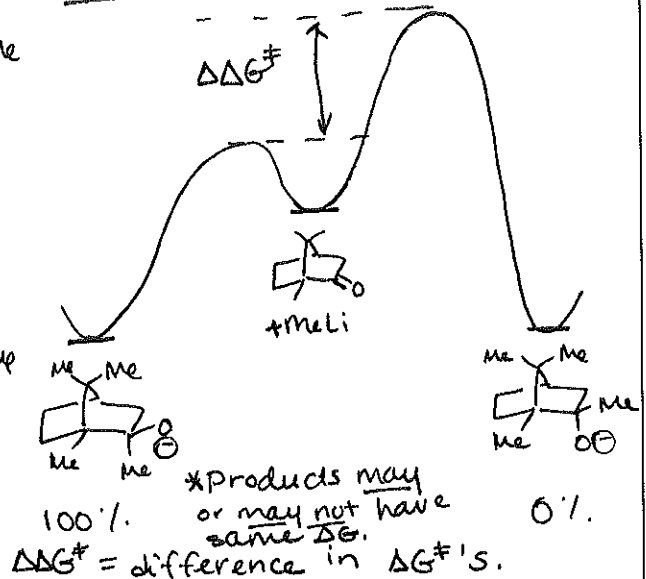 ΔΔG‡
O
+MeLi
Me Me
O
⊖
Me
Me
Me Me
Me
Me
O⊖
100%.
*Products may
or may not have
same ΔG.
0%.
ΔΔG‡ = difference in ΔG‡'s.